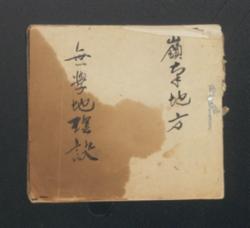 嶺南地方
無學地理訣